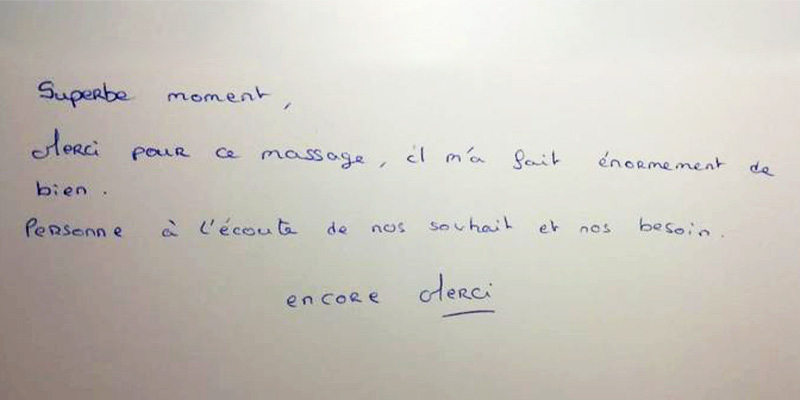 Superbe moment,
Merci pour ce massage, il m'a fait énormement de
bien.
Personne à l'écoute de nos souhait et nos besoin.
encore Merci